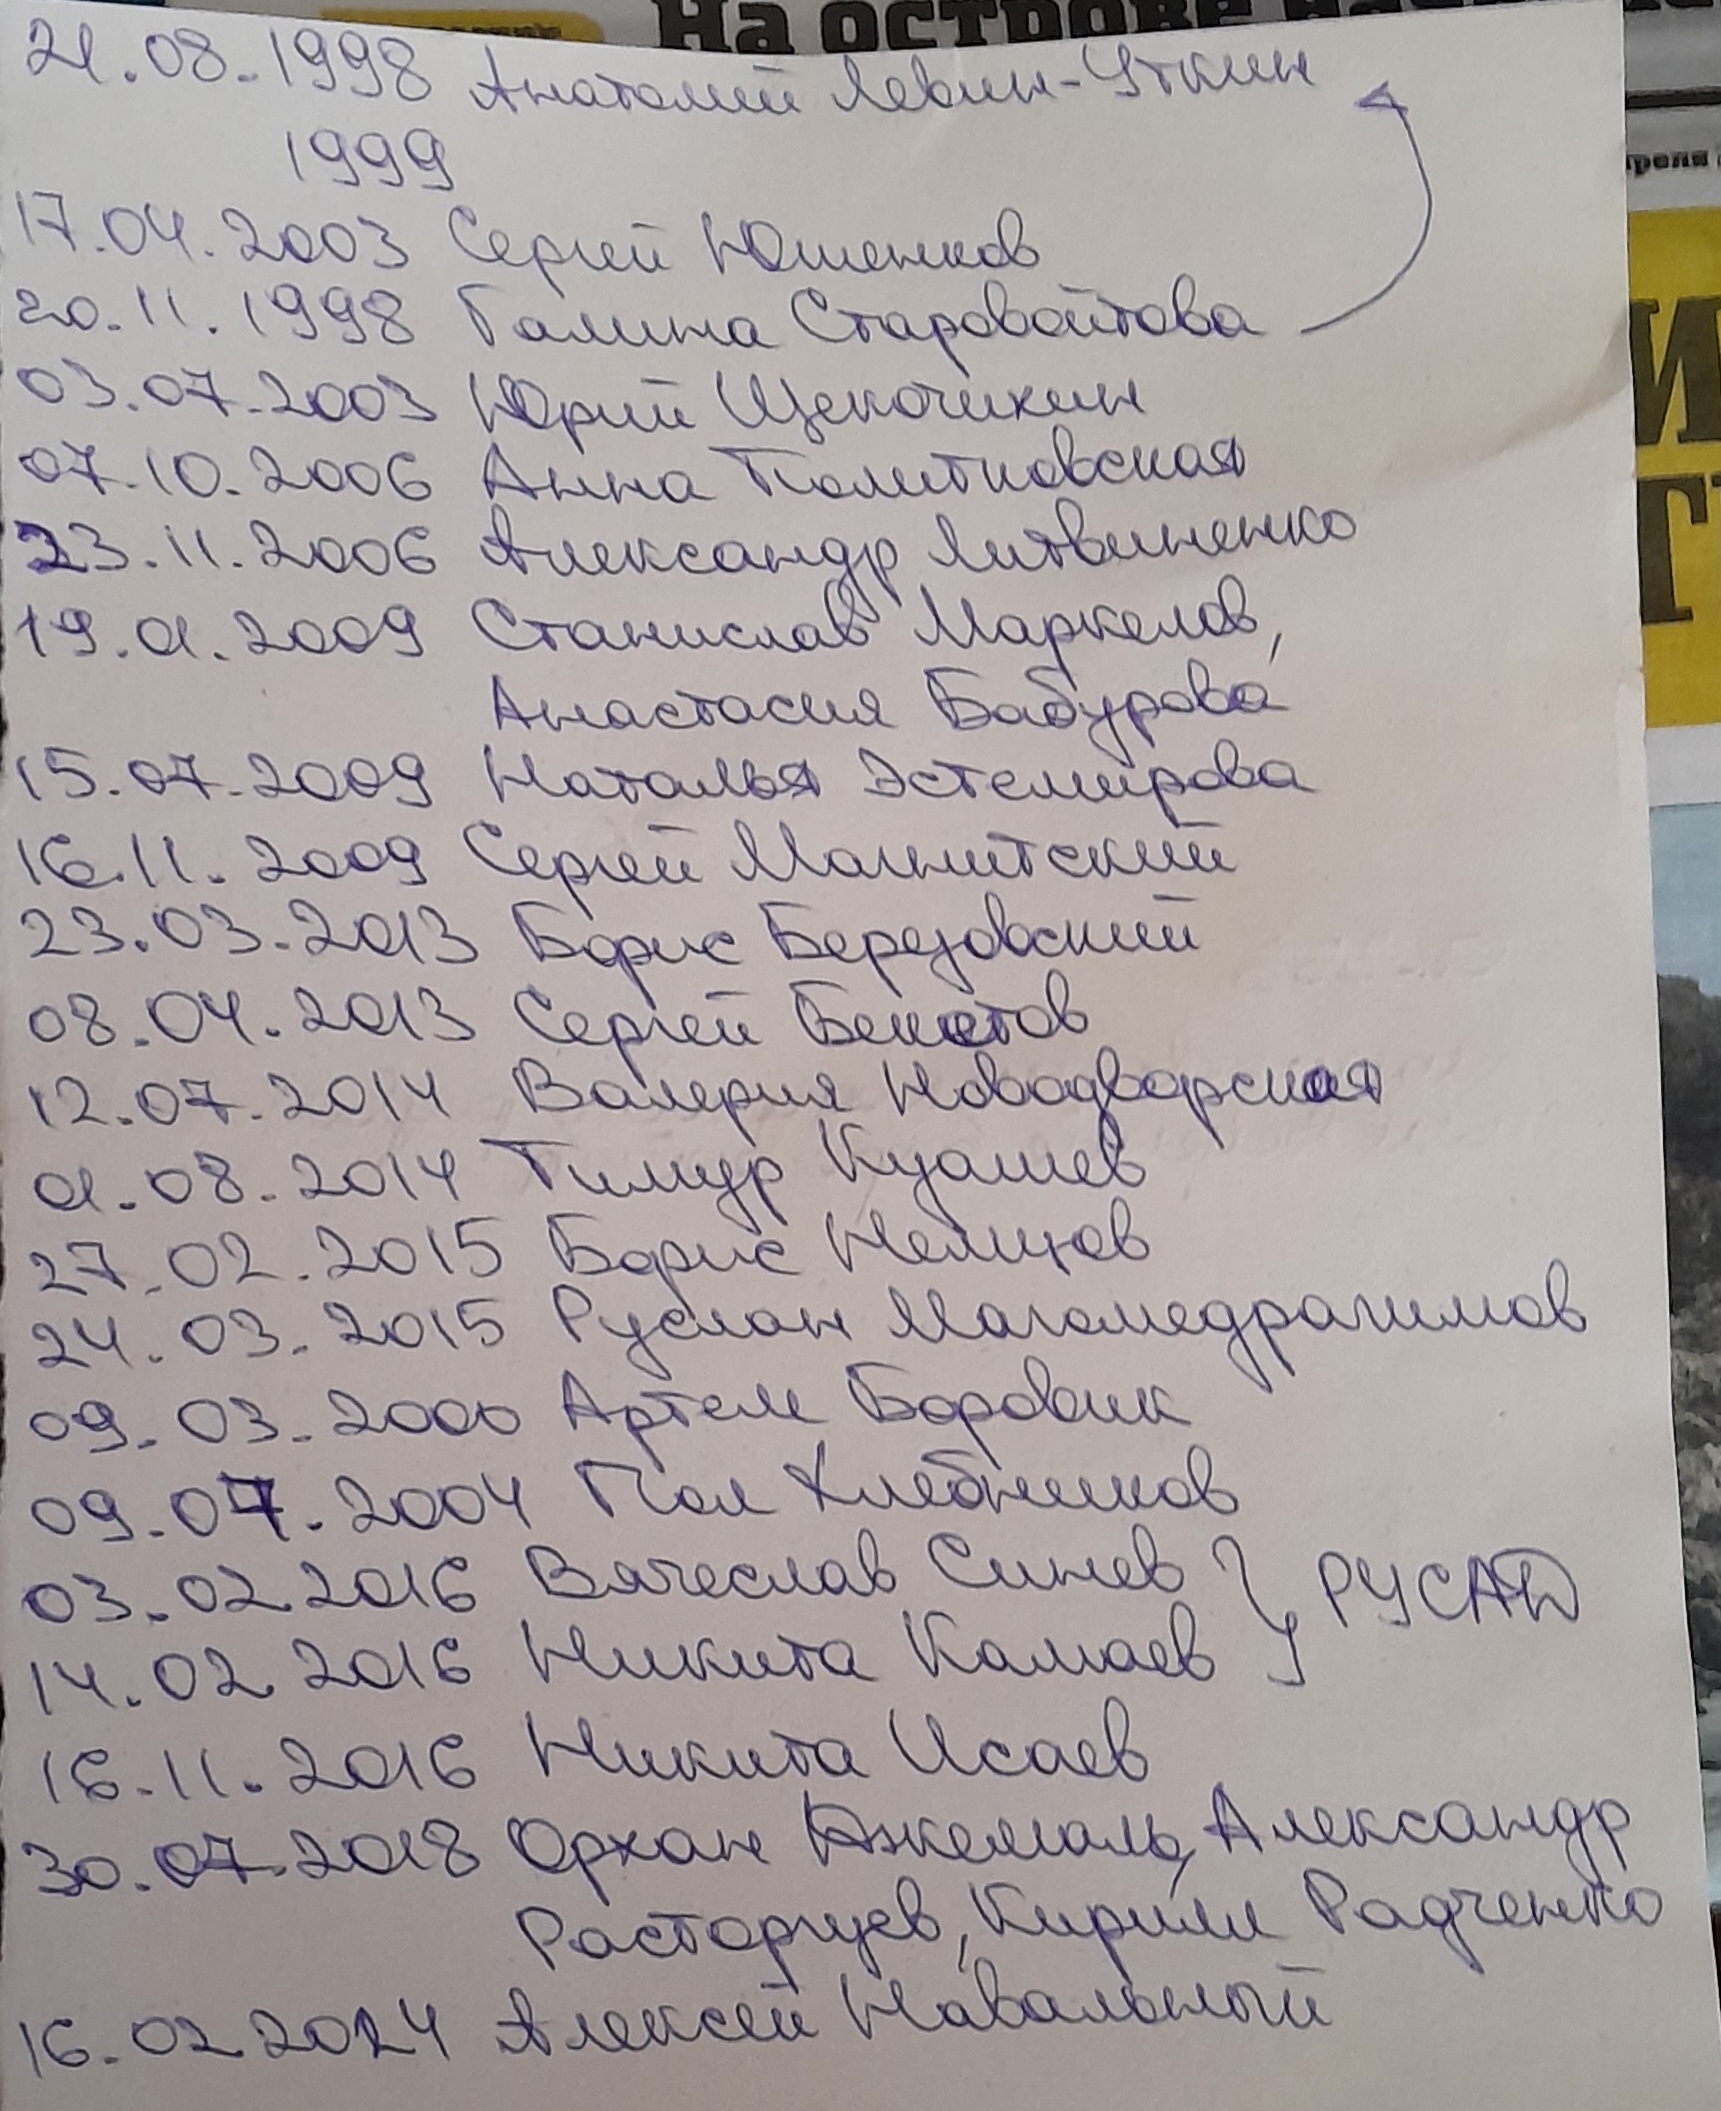 На острове
21.08.1998 Анатолий Левин-Уткин
1999
17.04.2003 Сергей Юшенков
20.11.1998 Галина Старовойтова
03.07.2003 Юрий Щекочихин
07.10.2006 Анна Политковская
23.11.2006 Александр Литвиненко
19.01.2009 Станислав Маркелов,
Анастасия Бабурова
15.07.2009 Наталья Эстемирова
16.11.2009 Сергей Магнитский
23.03.2013 Борис Березовский
08.04.2013 Сергей Бекетов
12.07.2014 Валерия Новодворская
01.08.2014 Тимур Куашев
27.02.2015 Борис Немцов
24.03.2015 Руслан Магомедрагимов
09.03.2000 Артем Боровик
09.07.2004 Пол Хлебников
03.02 2016 Вячеслав Синев
РУСАД
14.02 2016 Никита Камаев
16.11.2016 Никита Исаев
30.07.2018 Орхан Джемаль, Александр
Расторгуев, Кирилл Радченко
16.02 2024 Алексей Навальный